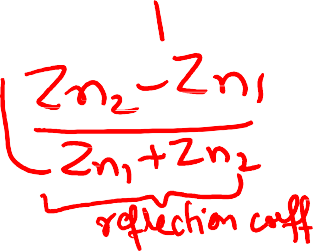 Zn₂ - Zn₁
Zn₁ + Zn₂
reflection coeff